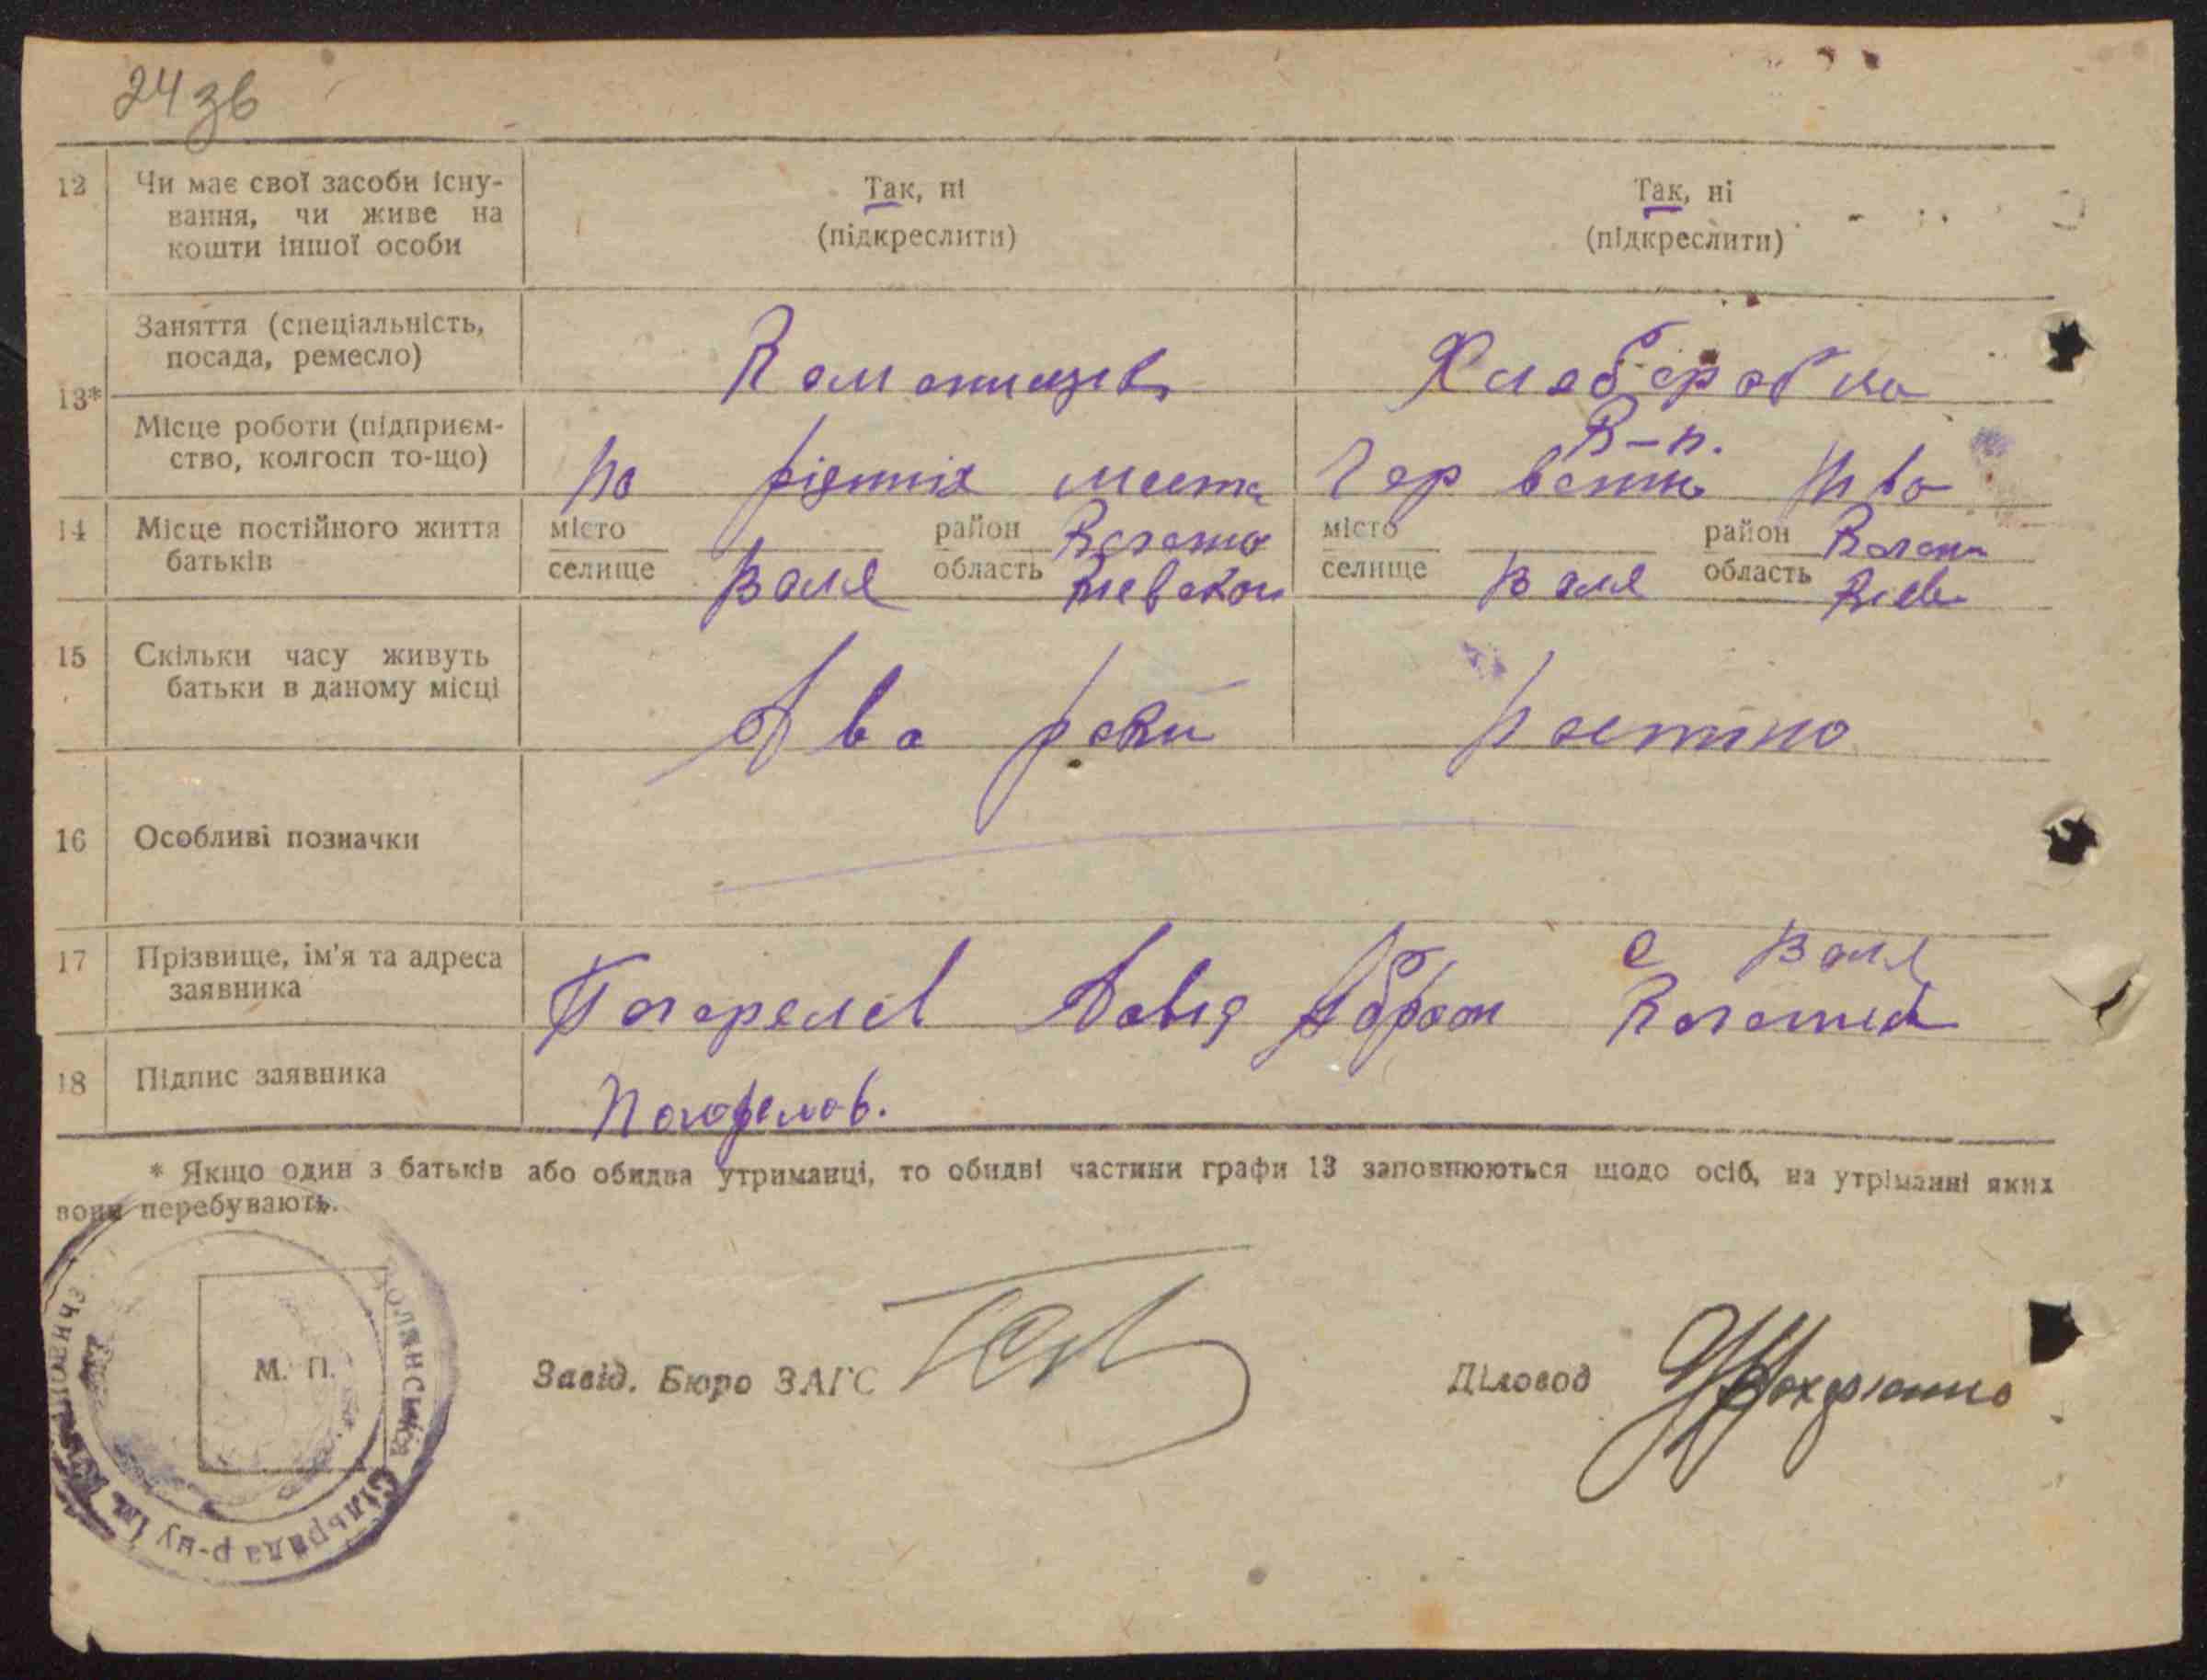 24 зв
12 Чи має свої засоби існу- Так, ні Так, ні
вання, чи живе на (підкреслити) (підкреслити)
кошти іншої особи
Заняття (спеціальність,
посада, ремесло) Хлеборобка
13*
Місце роботи (підприєм- К-п.
ство, колгосп то-що) По різних Червенна
14 Місце постійного життя місто район місто район
батьків селище Воля область Киевской селище Воля область Киев
15 Скільки часу живуть
батьки в даному місці Два роки постино
16 Особливі позначки
17 Прізвище, ім'я та адреса с Воля
заявника Погорелов Давид Абрам
18 Підпис заявника Погорелов.
* Якщо один з батьків або обидва утриманці, то обидві частини графи 13 заповнюються щодо осіб, на утріманні яких
вони перебувають.
М. П.
Завід. Бюро ЗАГС Діловод
Сільрада р-ну ім.